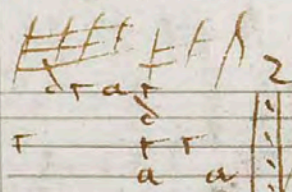 2
d r a r
d
r r r
a a